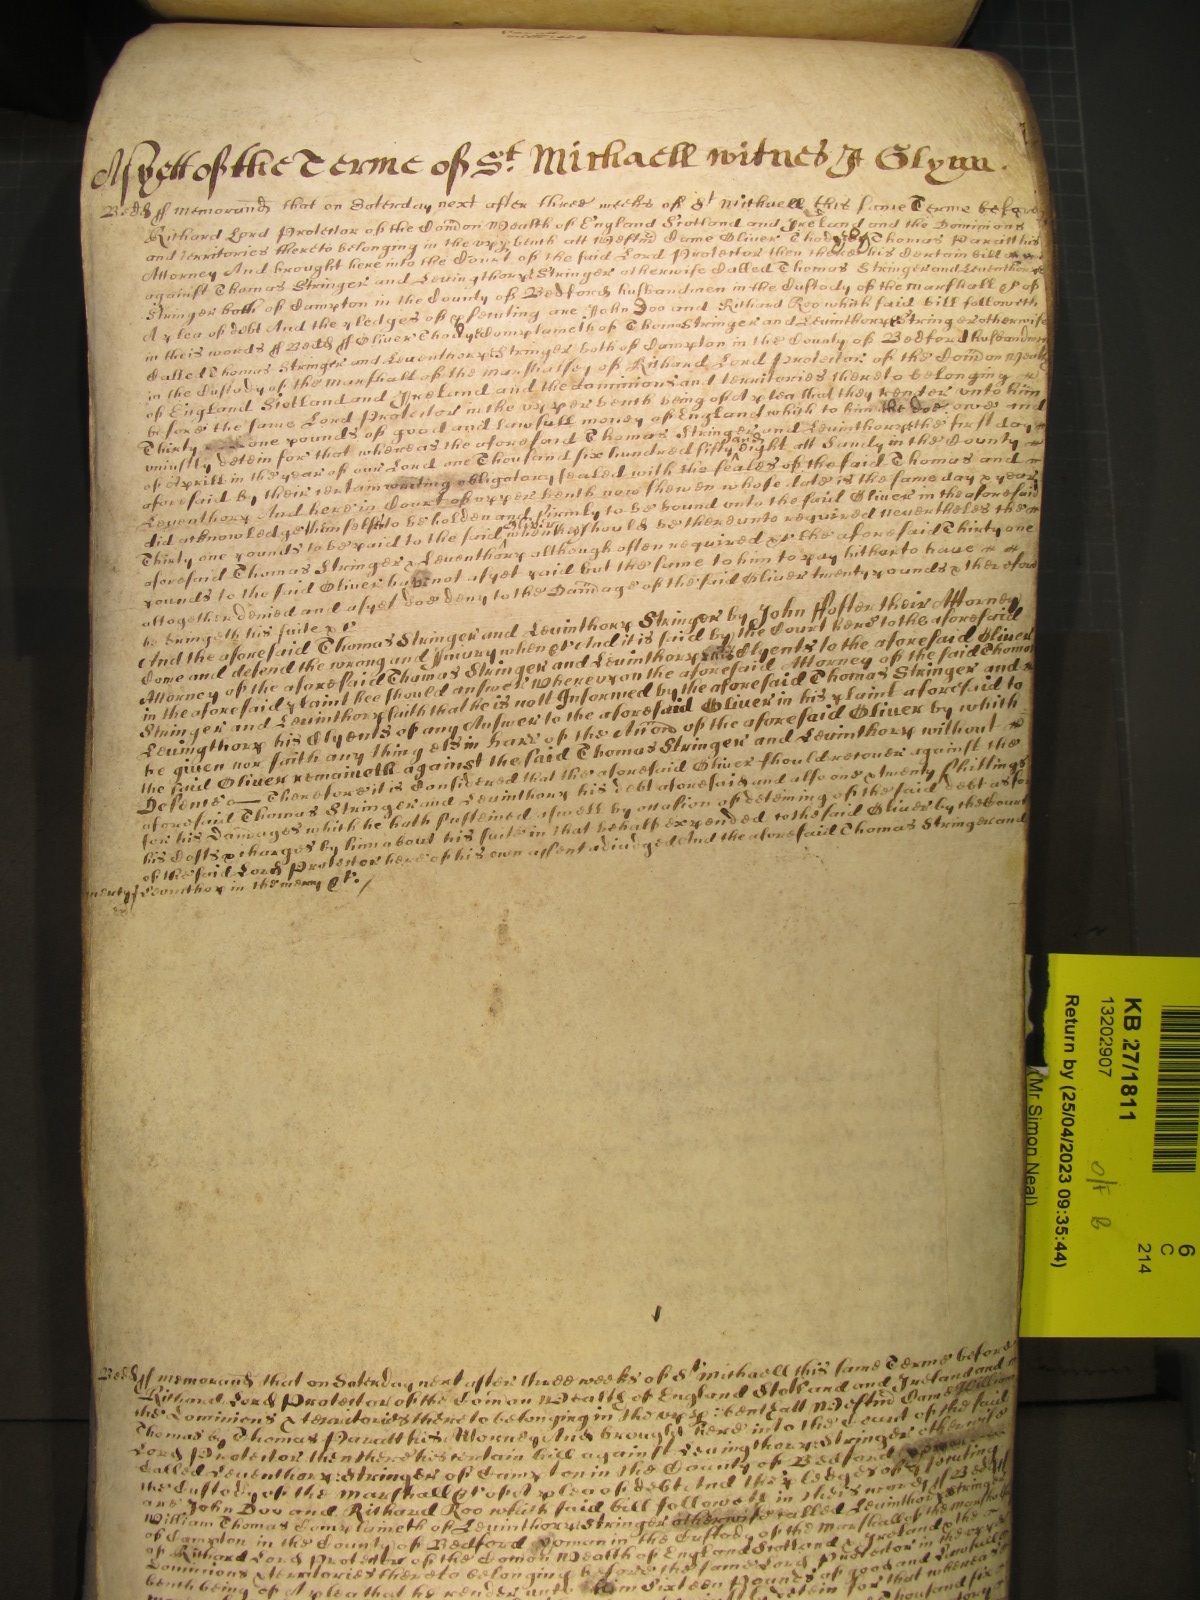 As yett of the Terme of St. Michaell witnes J Glynn.
Bedd ss memorand that on Saterday next after three weeks of St Michaell this same Terme before
Richard Lord Protector of the Common Wealth of England Scotland and Ireland and the Dominions
and territories thereto belonging in the upper bench att Westm Came Oliver Thodye by Thomas Paratt his
Attorney And brought here into the Court of the said Lord Protector then there his Certain bill
against Thomas Stringer and Levingthorp Stringer otherwise Called Thomas Stringer and Leventhorpe
Stringer both of Campton in the County of Bedford husbandmen in the Custody of the marshall &c of
A plea of debt And the pledges of prosecuting are John Doo and Richard Roo which said bill followeth
in theis words ss Bedd ss Oliver Thodye Complaineth of Thomas Stringer and Levinthorp Stringer otherwise
Called Thomas Stringer and Leventhorp Stringer both of Campton in the County of Bedford husbandmen
in the Custody of the Marshall of the Marshalsey of Richard Lord Protector of the Common Wealth
of England Scotland and Ireland and the Dominions and territories thereto belonging
before the same Lord Protector in the upper bench being of A plea that they render unto him
Thirty one pounds of good and lawfull money of England which to him the doe owe and
uniustly detein for that whereas the aforesaid Thomas Stringer and Levinthorp the first day
of Aprill in the year of our Lord one Thousand six hundred fifty and eight att Sandy in the County
aforesaid by their certain writing obligatory sealed with the seales of the said Thomas and
Leventhorp And here in Court of upper bench now shewen whose date is the same day & year
did acknowledge themselfes to be holden and firmly to be bound unto the said Oliver in the aforesaid
Thirty one pounds to be paid to the said Oliver when he should be thereunto required Nevertheles the
aforesaid Thomas Stringer & Leventhorp although often required &c the aforesaid Thirty one
pounds to the said Oliver have not as yet paid but the same to him to pay hitherto have
altogether denied and as yet doe deny to the Damage of the said Oliver twenty pounds & therefore
he bringeth his suite &c
And the aforesaid Thomas Stringer and Levinthorp Stringer by John Foster their Attorney
Come and defend the wrong and Injury when &c And it is said by the Court here to the aforesaid
Attorney of the aforesaid Thomas Stringer and Levinthorp his Clyents to the aforesaid Oliver
in the aforesaid plaint hee should answer Whereupon the aforesaid Attorney of the said Thomas
Stringer and Levinthorp saith that he is nott Informed by the aforesaid Thomas Stringer and
Levingthorp his Clyents of any Answer to the aforesaid Oliver in his plaint aforesaid to
be given nor saith any thing els in barr of the Accon of the aforesaid Oliver by which
the said Oliver remaineth against the said Thomas Stringer and Levinthorp without
Defence Therefore it is Considered that the aforesaid Oliver should recover against the
aforesaid Thomas Stringer and Levinthorp his debt aforesaid and also one & twenty shillings
for his Damages which he hath susteined aswell by occasion of deteining of the said debt as for
his Costs & charges by him about his suite in that behalf expended to the said Oliver by the Court
of the said Lord Protector here of his own assent adiudged And the aforesaid Thomas Stringer and
mercy Levinthorp in the mercy &c.
Bedd ss memorand that on Saterday next after three weeks of St michaell this same Terme before
Richard Lord Protector of the Common Wealth of England Scotland and Ireland and
the Dominions & territories thereto belonging in the upper bench att Westm Came William
Thomas by Thomas Paratt his Attorney And brought here into the Court of the said
Lord Protector then there his certain bill against Levingthorp Stringer otherwise
Called Leventhorp Stringer of Campton in the County of Bedford
the Custody of the marshall &c of A plea of debt And the pledges of prosecuting
are John Doo and Richard Roo which said bill followeth in theis words ss Bedd ss
William Thomas Complaineth of Levinthorp Stringer otherwise called Levinthorp Stringer
of Campton in the County of Bedford yoman in the Custody of the Marshall of the marshalsey
of Richard Lord Protector of the Comon Wealth of England Scotland & Ireland & the
Dominions & territories thereto belonging before the same Lord Protector in the upper
bench being of A plea that he render unto him Sixteen Pounds of good and lawfull
detein for that whereas
Thousand six
KB 27/1811
13202907
Return by (25/04/2023 09:35:44)
(Mr Simon Neal)
6
C
214